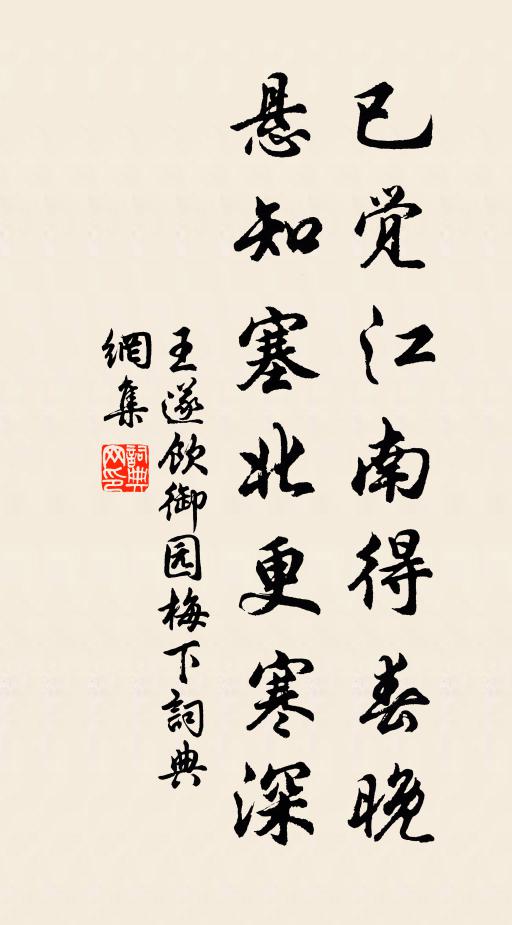 已觉江南得春晚
悬知塞北更寒深
王遂饮御园梅下詞典
網集
詞典
网印